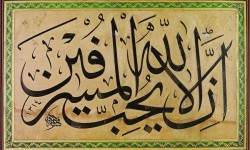 ان الله لا يحب المسرفين